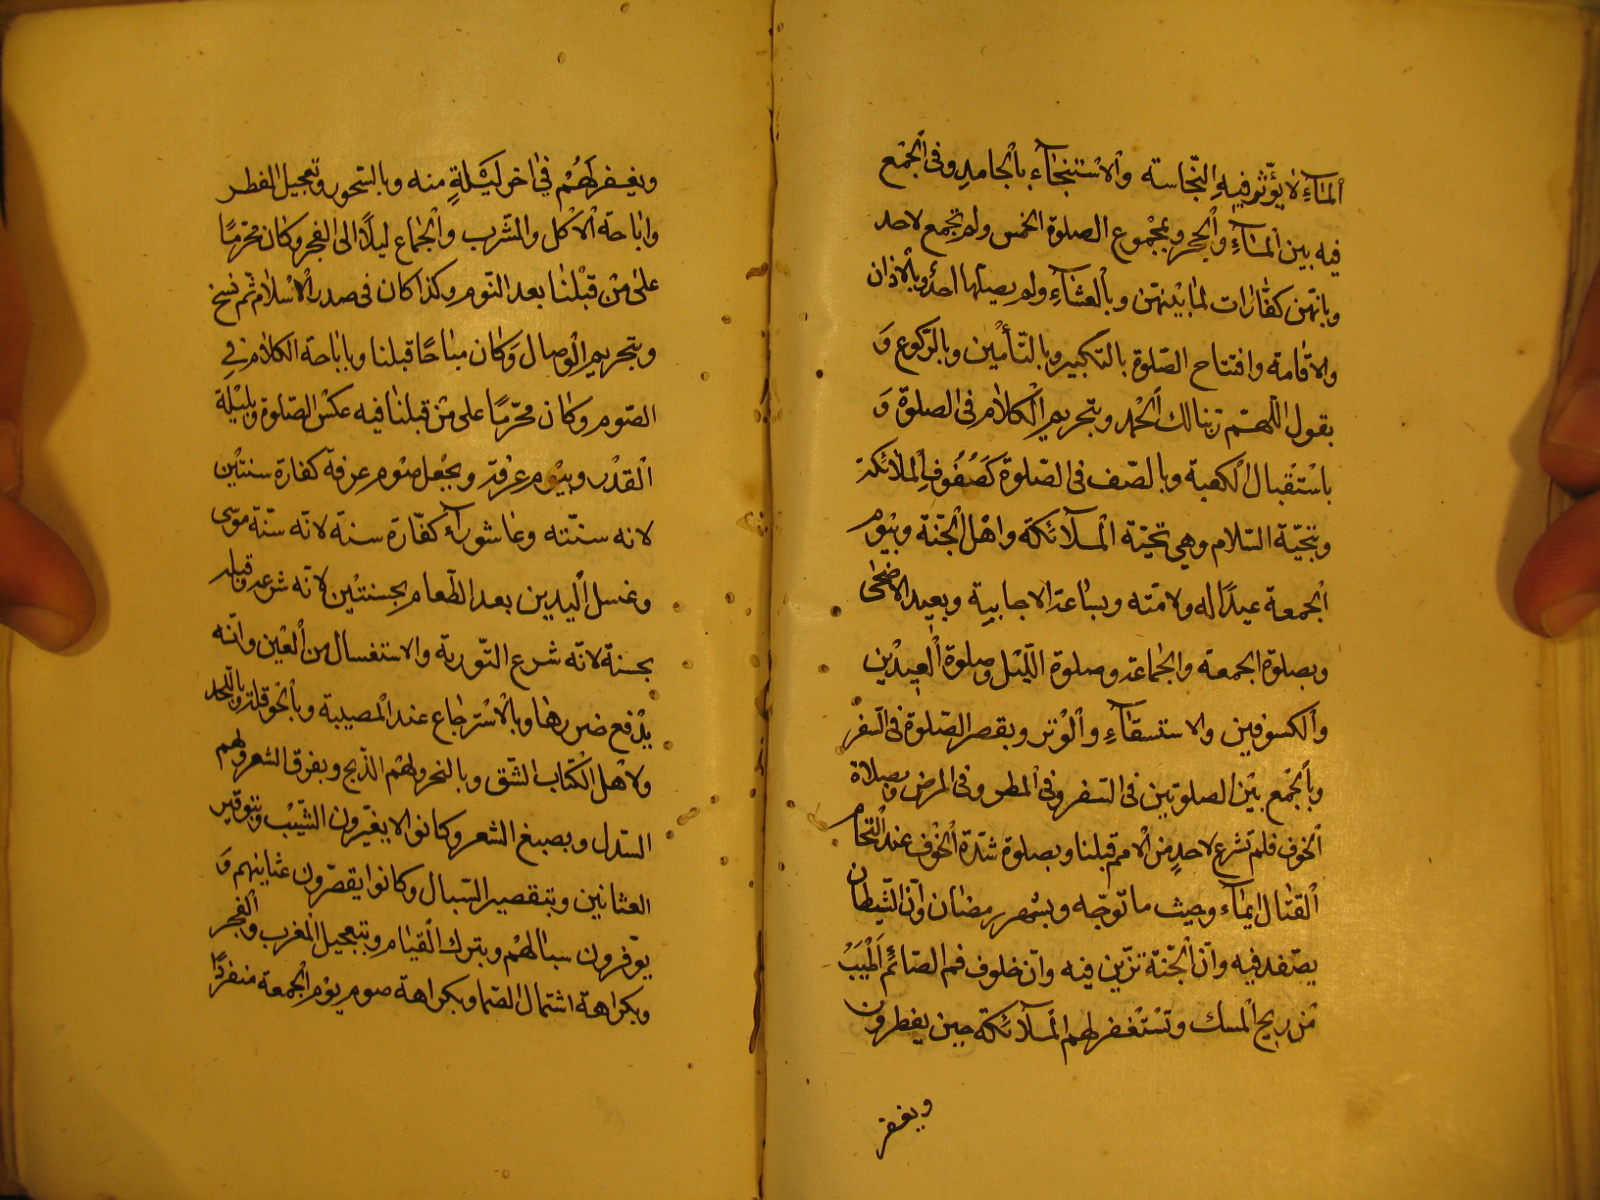 ألمآء لا يؤثر فيه النجاسة والاستنجآء بالجامد وفى الجمع
فيه بين المآء والحجر وبمجموع الصلوة الخمس ولم تجمع لاحد
وبانهن كفارات لما بينهن وبالعشآء ولم يصلها احد وبالاذان
والاقامة وافتتاح الصلوة بالتكبير وبالتأمين وبالركوع وَ
بقول اللهم ربنا لك الحمد وبتحريم الكلام فى الصلوة وَ
باستقبال الكعبة وبالصف فى الصلوة كصفوف الملائكة
وبتحية السلام وهي تحية الملآئكة واهل الجنة وبيوم
الجمعة عيدًا له ولامته وبساعة الاجابية وبعيد الاضحى
وبصلوة الجمعة والجماعة وصلوة الليل وصلوة العيدين
والكسوفين والاستسقآء والوتر وبقصر الصلوة فى السفر
وبالجمع بين الصلوتين فى السفر وفى المطر وفى المرض وبصلاة
الخوف فلم تشرع لاحد من الامم قبلنا وبصلوة شدة الخوف عند التحام
القتال ايمآء وحيث ما توجه وبشهر رمضان وان الشيطان
يصفد فيه وان الجنة تزين فيه وان خلوف فم الصائم أطيب
من ريح المسك وتستغفر لهم الملآئكة حين يفطرون
ويغفر
ويغفر لهم في اخر ليلة منه وبالسحور وتعجيل الفطر
واباحة الاكل والشرب والجماع ليلًا الى الفجر وكان محرمًا
على من قبلنا بعد النوم وكذا كان فى صدر الاسلام ثم نسخ
وبتحريم الوصال وكان مباحًا قبلنا وباباحة الكلام في
الصوم وكان محرّمًا على من قبلنا فيه عكس الصلوة وبليلة
القدر وبيوم عرفة وبجعل صوم عرفة كفارة سنتين
لانه سنته وعاشورآء كفّارة سنة لانه سنّة موسى
وغسل اليدين بعد الطعام بحسنتين لانه شرعه وقبله
بحسنة لانه شرع التورية والاستغسال من العين وانه
يدفع ضررها وبالاسترجاع عند المصيبة وبالحوقلة وباللحد
ولاهل الكتاب الشق وبالنحر ولهم الذبح وبفرق الشعر ولهم
السدل وبصبغ الشعر وكانوا لا يغيّرون الشيب وبتوفير
العثانين وبتقصير السبال وكانوا يقصّرون عثانينهم وَ
يوفرون سبالهم وبترك القيام وبتعجيل المغرب والفجر
وبكراهة اشتمال الصما وبكراهة صوم يوم الجمعة منفردًا